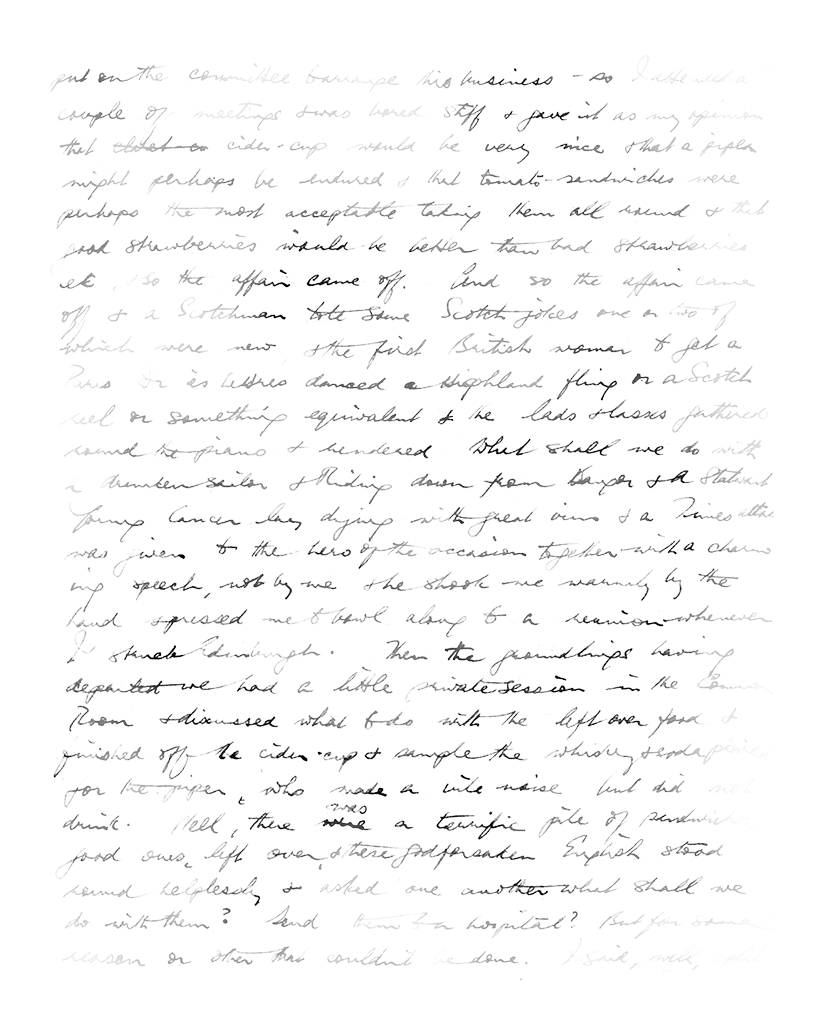 put on the committee to arrange this business - so I attended a
couple of meetings & was bored stiff & gave it as my opinion
that cider-cup would be very nice & that a piper
might perhaps be endured & that tomato-sandwiches were
perhaps the most acceptable taking them all round & that
good strawberries would be better than bad strawberries
etc, & so the affair came off. And so the affair came
off & a Scotchman told some Scotch jokes one or two of
which were new, & the first British woman to get a
Paris Dr ès lettres danced a Highland fling or a Scotch
reel or something equivalent & the lads & lasses gathered
round the piano & rendered What shall we do with
a drunken sailor & Riding down from Bangor & A Stalwart
Young Lancer lay dying with great vim & a Times atlas
was given to the hero of the occasion together with a charm
ing speech, not by me & he shook me warmly by the
hand & pressed me to bowl along to a reunion whenever
I struck Edinburgh. Then the groundlings having
departed we had a little private session in the Common
Room & discussed what to do with the left over food &
finished off the cider-cup & sample the whiskey & soda
for the piper, who made a vile noise but did not
drink. Well, there was a terrific pile of sandwiches
good ones, left over, & these godforsaken English stood
round helplessly & asked one another what shall we
do with them? Send them to a hospital? But for some
reason or other that couldn't be done. I said, well,